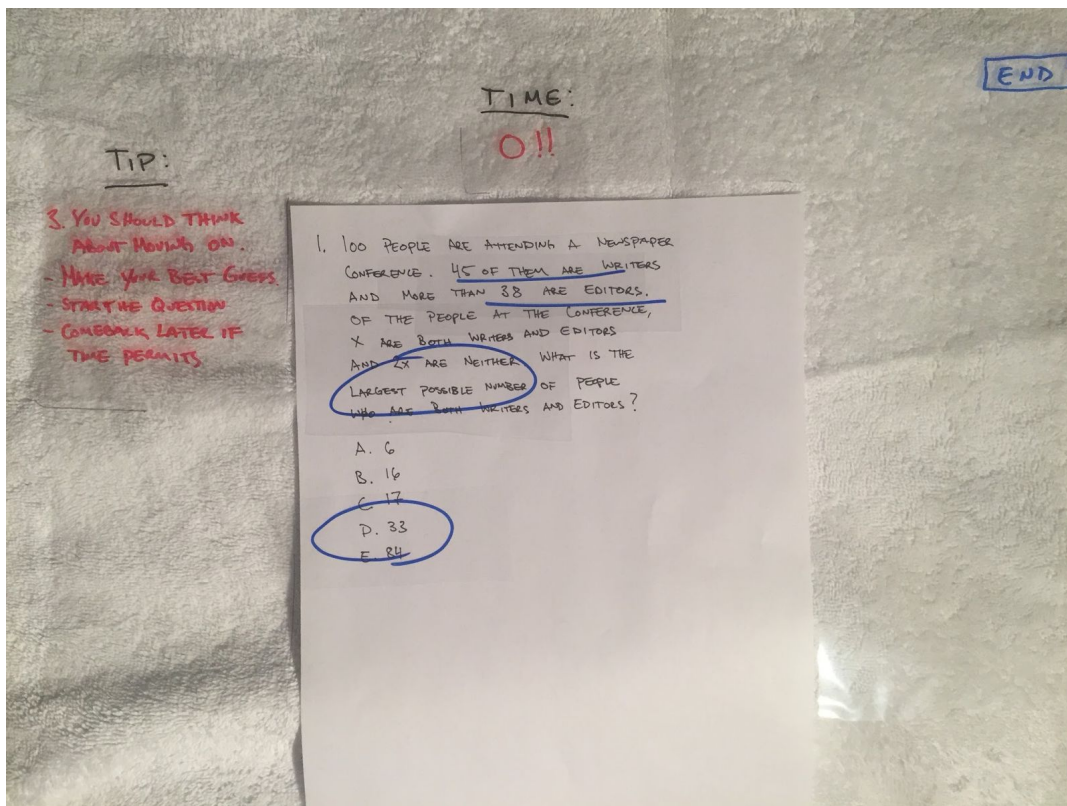 END
TIME:
0!!
TIP:
3. YOU SHOULD THINK
ABOUT MOVING ON.
- MAKE YOUR BEST GUESS.
- START THE QUESTION
- COMEBACK LATER IF
TIME PERMITS
1. 100 PEOPLE ARE ATTENDING A NEWSPAPER
CONFERENCE. 45 OF THEM ARE WRITERS
AND MORE THAN 38 ARE EDITORS.
OF THE PEOPLE AT THE CONFERENCE,
X ARE BOTH WRITERS AND EDITORS
AND 2X ARE NEITHER WHAT IS THE
LARGEST POSSIBLE NUMBER OF PEOPLE
WHO ARE BOTH WRITERS AND EDITORS?
A. 6
B. 16
C. 17
D. 33
E. 84